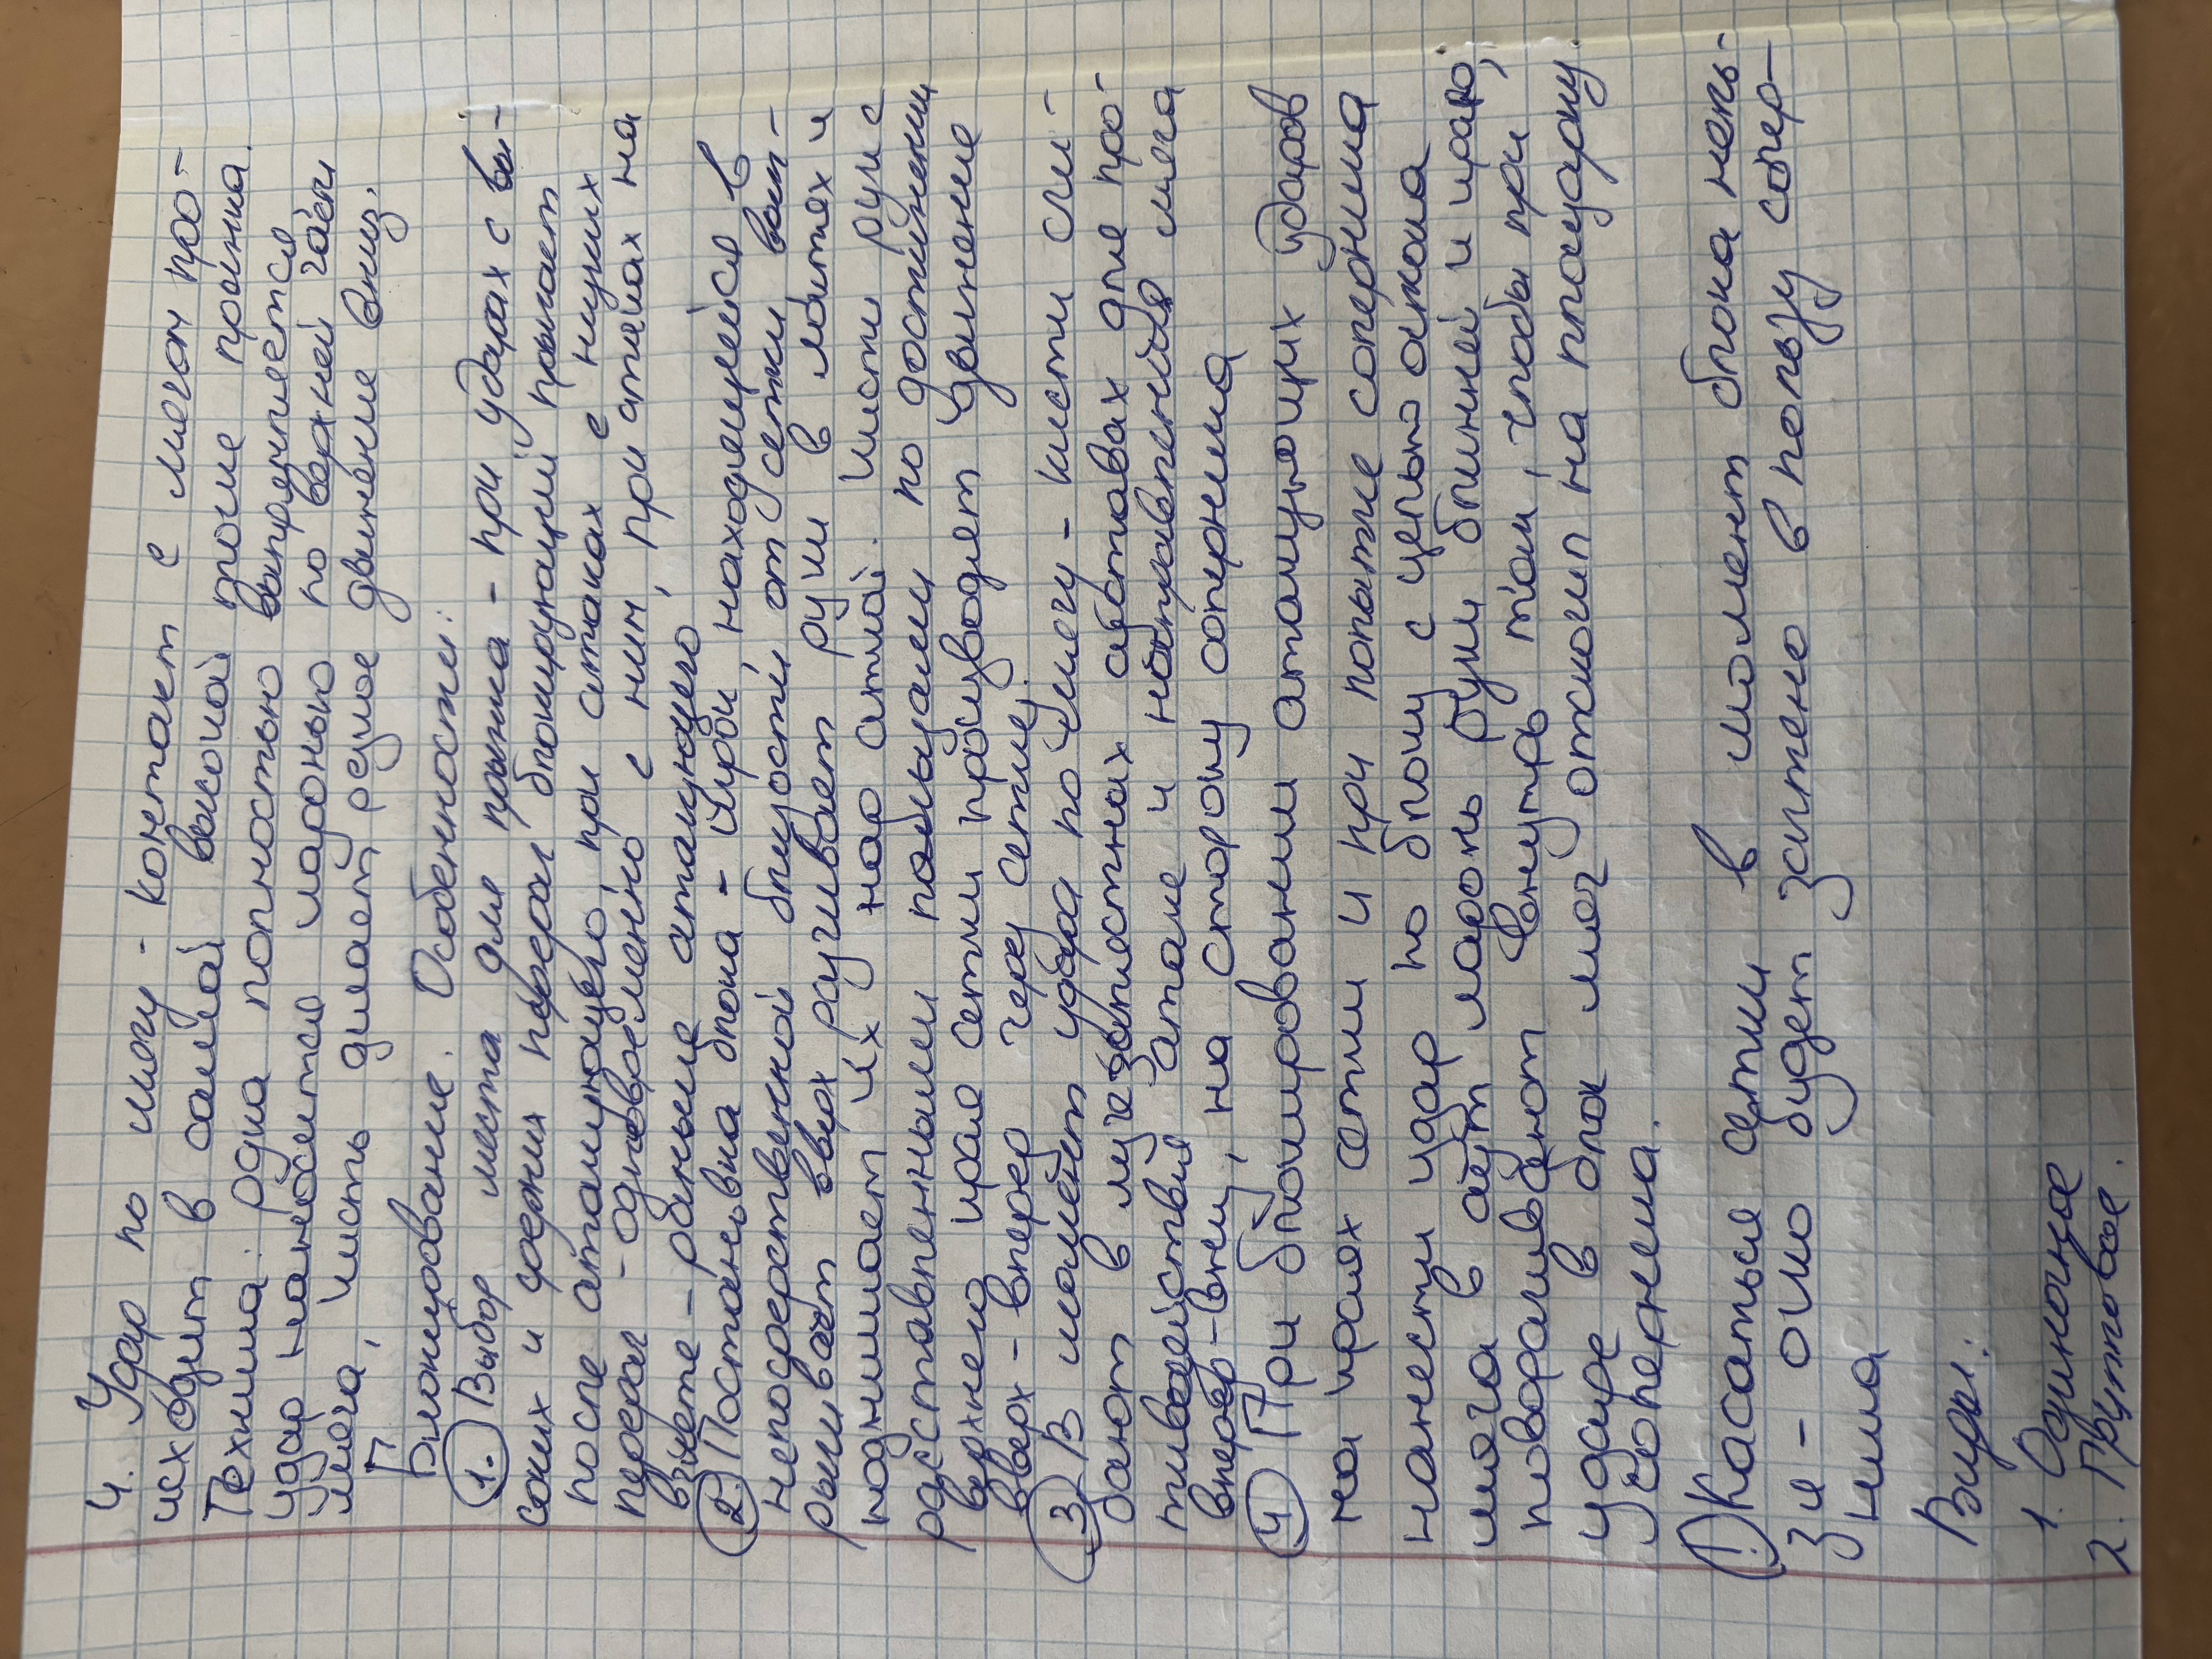 4. Удар по мячу - контакт с мячом про-
исходит в самой высокой точке прыжка.
Техника: рука полностью выпрямляется
удар наносится ладонью по задней части
мяча, кисть делает резкое движение вниз.
Блокирование. Особенности:
1. Выбор места для прыжка - при ударах с вы-
соких и средних передач блокирующий прыгает
после атакующего, при атаках с низких
передач - одновременно с ним, при атаках на
взлёте - раньше атакующего
2. Постановка блока - игрок, находящийся в
непосредственной близости от сетки вып-
рыгивает вверх разгибает руки в локтях и
поднимает их над сеткой. Кисти рук с
расставленными пальцами по достижении
верхнего края сетки производят движение
вверх - вперёд через сетку.
3. В момент удара по мячу - кисти сги-
бают в лучезапястных суставах для про-
тиводействия атаке и направления мяча
вперёд-вниз, на сторону соперника
4. При блокировании атакующих ударов
на краях сетки и при попытке соперника
нанести удар по блоку с целью отскока
мяча в аут ладонь руки ближней и краю,
поворачивают внутрь так, чтобы при
ударе в блок мяч отскочил на площадку
соперника.
! Касаться сетки в момент блока нель-
зя - очко будет засчитано в пользу сопер-
ника
Виды:
1. Одиночное
2. Групповое.